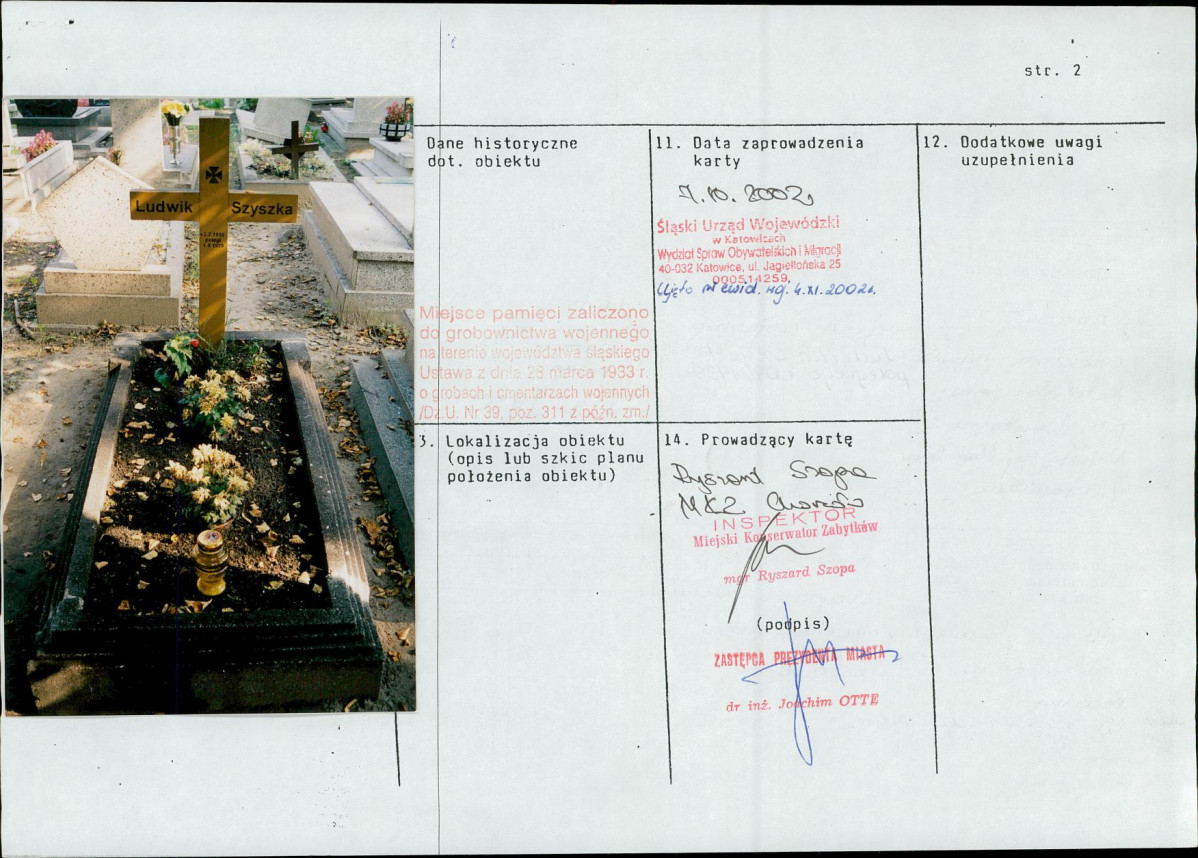 str. 2
Ludwik Szyszka
Dane historyczne
dot. obiektu
Miejsce pamięci zaliczono
do grobownictwa wojennego
na terenie województwa śląskiego
Ustawa z dnia 28 marca 1933 r.
o grobach i cmentarzach wojennych
/Dz.U. Nr 39, poz. 311 z późn. zm./
11. Data zaprowadzenia
karty
7.10.2002
Śląski Urząd Wojewódzki
w Katowicach
Wydział Spraw Obywatelskich i Migracji
40-032 Katowice, ul. Jagiellońska 25
000514259
Ujęto w ewid. wg. 4.XI.2002r.
12. Dodatkowe uwagi
uzupełnienia
3. Lokalizacja obiektu
(opis lub szkic planu
położenia obiektu)
14. Prowadzący kartę
Ryszard Szopa
MKZ Chorzów
INSPEKTOR
Miejski Konserwator Zabytków
mgr Ryszard Szopa
(podpis)
ZASTĘPCA PREZYDENTA MIASTA
dr inż. Joachim OTTE